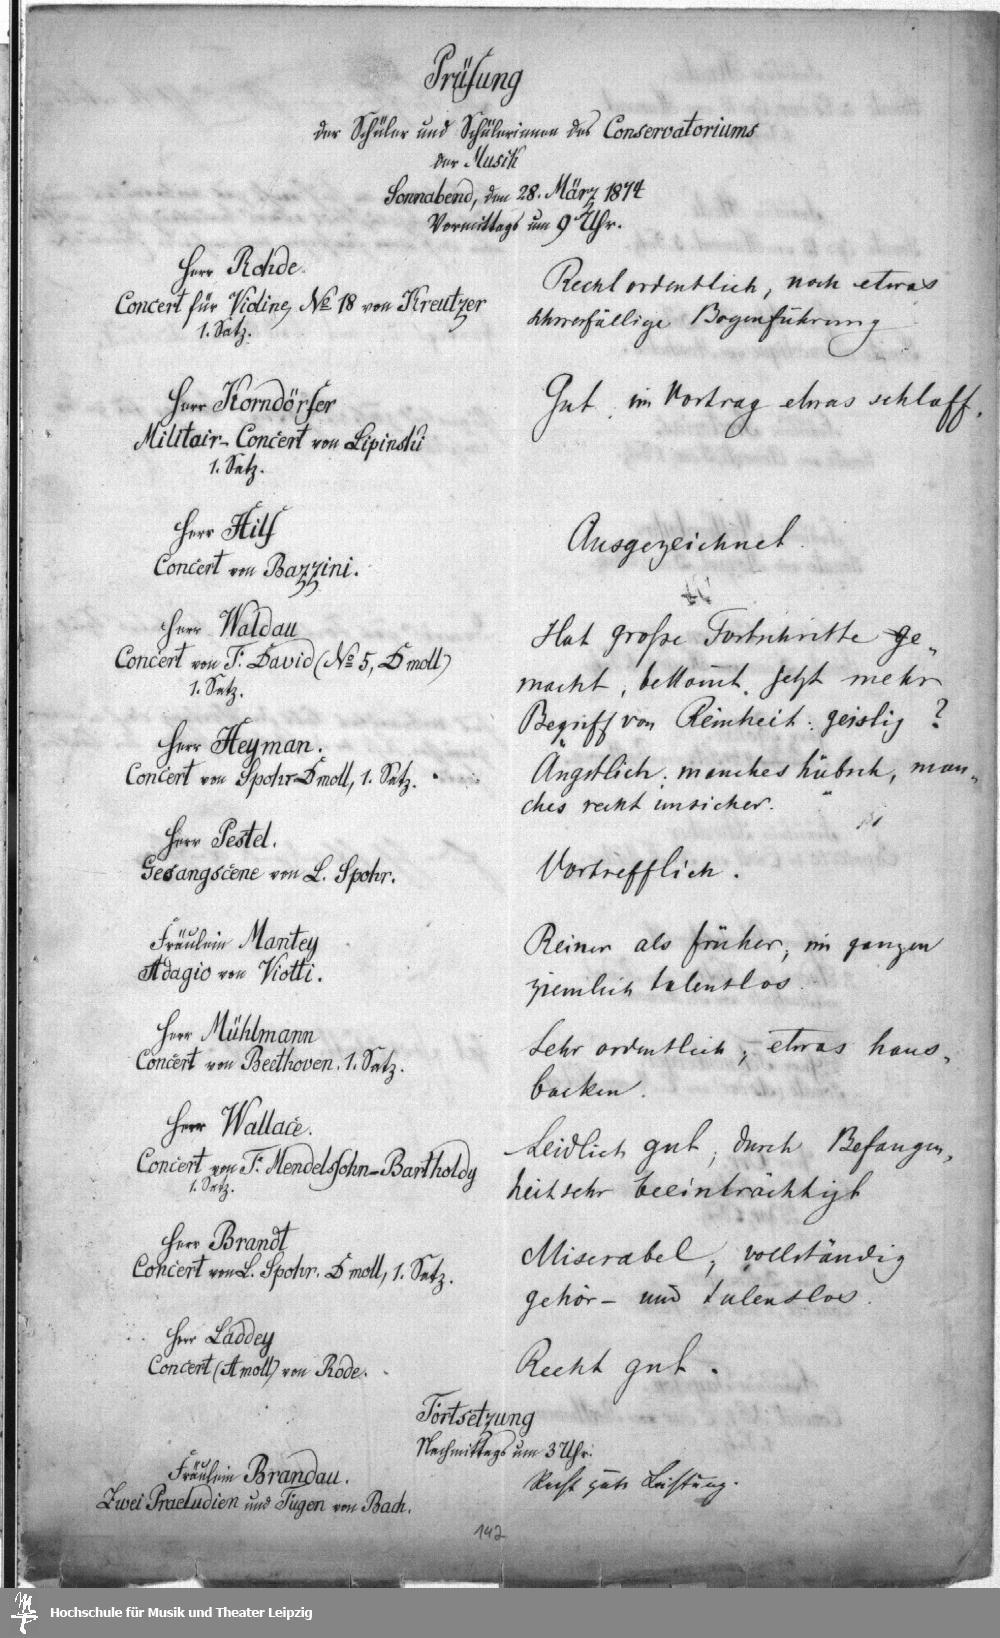 Prüfung
der Schüler und Schülerinnen des Conservatoriums
der Musik
Sonnabend, den 28. März 1874
Vormittags um 9 Uhr.
Herr Rohde.
Concert für Violine, No 18 von Kreutzer
1. Satz.
Recht ordentlich, noch etwas
schwerfällige Bogenführung
Herr Korndörfer
Militair-Concert von Lipinski
1. Satz.
Gut, im Vortrag etwas schlaff.
Herr Hilf
Concert von Bazzini.
Ausgezeichnet.
Herr Waldau
Concert von F. David (No 5, D moll)
1. Satz.
Hat große Fortschritte ge-
macht, bekommt jetzt mehr
Begriff von Reinheit: geistig ?
Herr Heyman.
Concert von Spohr D moll, 1. Satz.
Ängstlich. manches hübsch, man-
ches recht unsicher.
Herr Pestel.
Gesangscene von L. Spohr.
Vortrefflich.
Fräulein Mantey
Adagio von Viotti.
Reiner als früher, im ganzen
ziemlich talentlos.
Herr Mühlmann
Concert von Beethoven. 1. Satz.
Sehr ordentlich, etwas haus-
backen.
Herr Wallace.
Concert von F. Mendelsſohn-Bartholdy
1. Satz.
Leidlich gut, durch Befangen-
heit sehr beeinträchtigt
Herr Brandt
Concert von L. Spohr. D moll, 1. Satz.
Miserabel, vollständig
gehör- und talentlos.
Herr Laddey
Concert (A moll) von Rode.
Recht gut.
Fortsetzung
Nachmittags um 3 Uhr.
Fräulein Brandau.
Zwei Praeludien und Fugen von Bach.
Recht gute Leistung.
142
Hochschule für Musik und Theater Leipzig